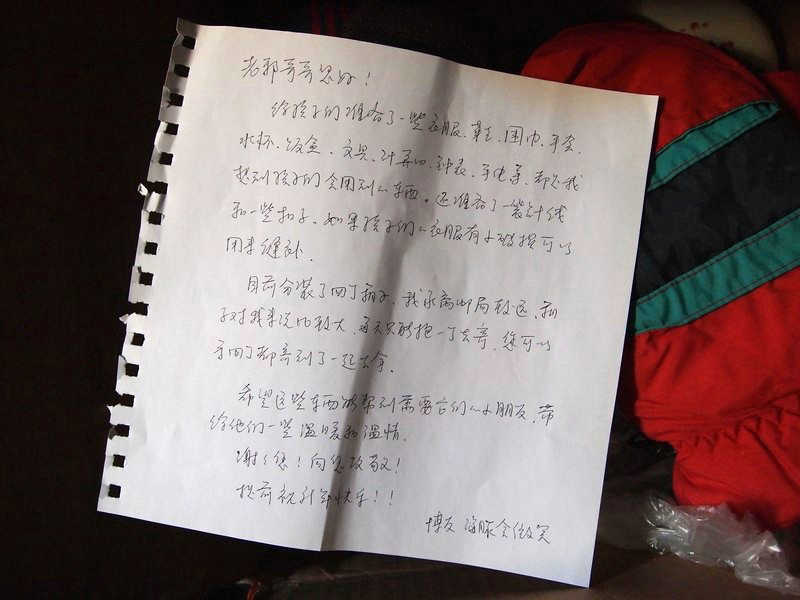 老郭哥哥您好！
给孩子们准备了一些衣服、鞋、围巾、手套、
水杯、饭盒、文具、计算器、钟表、手电等，都是我
想到孩子们会用到的东西。还准备了一袋针线
和一些扣子，如果孩子们的衣服有小破损可以
用来缝补。
目前分装了四个箱子，我家离邮局较远，箱
子对我来说比较大，每天只能抱一个去寄，您可以
等四个都寄到了一起去拿。
希望这些东西能帮到需要它们的小朋友，带
给他们一些温暖和温情。
谢谢您！向您致敬！
提前祝新年快乐！！
博友 海豚会微笑